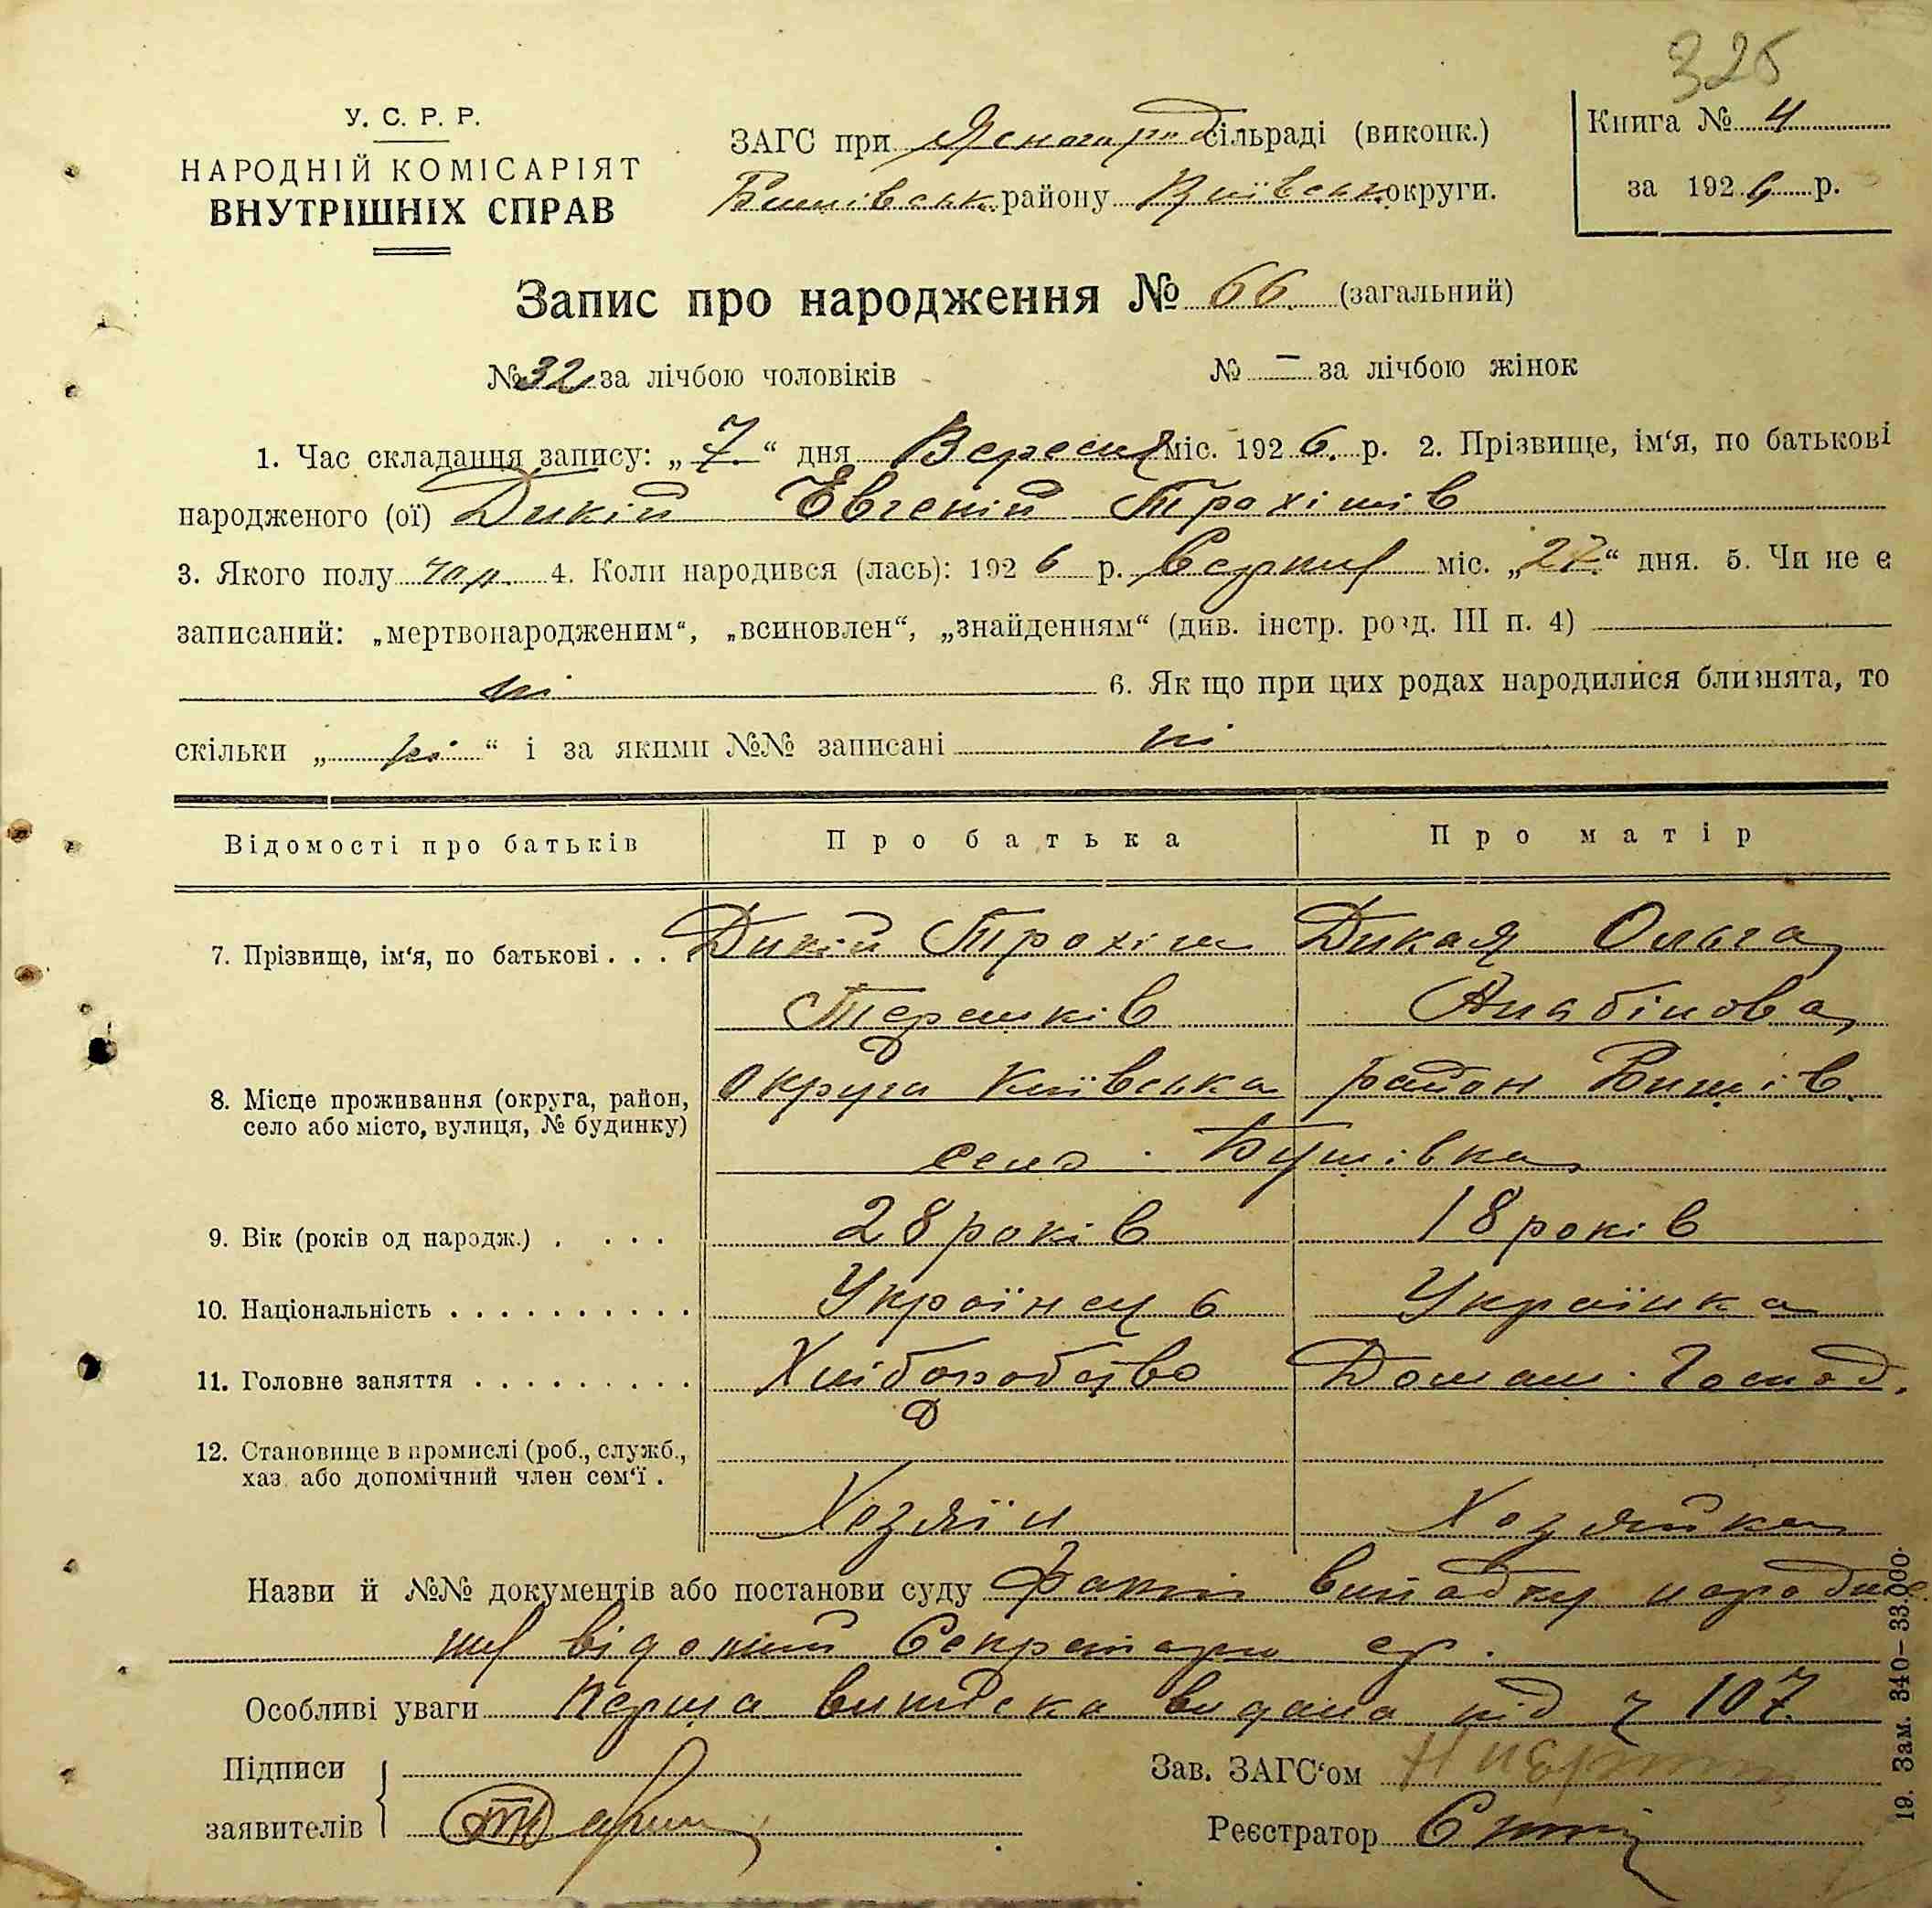 325
У. С. Р. Р.
НАРОДНІЙ КОМІСАРІЯТ
ВНУТРІШНІХ СПРАВ
ЗАГС при Ясногород сільраді (виконк.)
району Київськ. округи.
Книга № 4
за 1926 р.
Запис про народження № 66 (загальний)
№ 32 за лічбою чоловіків № — за лічбою жінок
1. Час складання запису: „7“ дня Вересня міс. 1926. р. 2. Прізвище, ім‘я, по батькові
народженого (ої) Дикій Евгеній Трохімів
3. Якого полу чол. 4. Коли народився (лась): 1926 р. Серпня міс. „27“ дня. 5. Чи не є
записаний: „мертвонародженим“, „всиновлен“, „знайденням“ (див. інстр. розд. III п. 4)
ні 6. Як що при цих родах народилися близнята, то
скільки „ні“ і за якими №№ записані ні
Відомості про батьків Про батька Про матір
7. Прізвище, ім‘я, по батькові . . . Дикій Трохім Дикая Ольга
Терешків
8. Місце проживання (округа, район, округа Київська район
село або місто, вулиця, № будинку)
село
9. Вік (років од народж.) . . . . 28 років 18 років
10. Національність . . . . . . . . . . Українець Українка
11. Головне заняття . . . . . . . . . Хліборобство Домаш. Господ.
12. Становище в промислі (роб., служб.,
хаз. або допомічний член сем‘ї .
Хозяїн Хозяйка
Назви й №№ документів або постановви суду випадку народже
ня відомий Секретарю с/р.
Особливі уваги Перша випіска видана під ч 107.
Підписи
заявителів
Зав. ЗАГС‘ом
Реєстратор
19. Зам. 340–33.000.